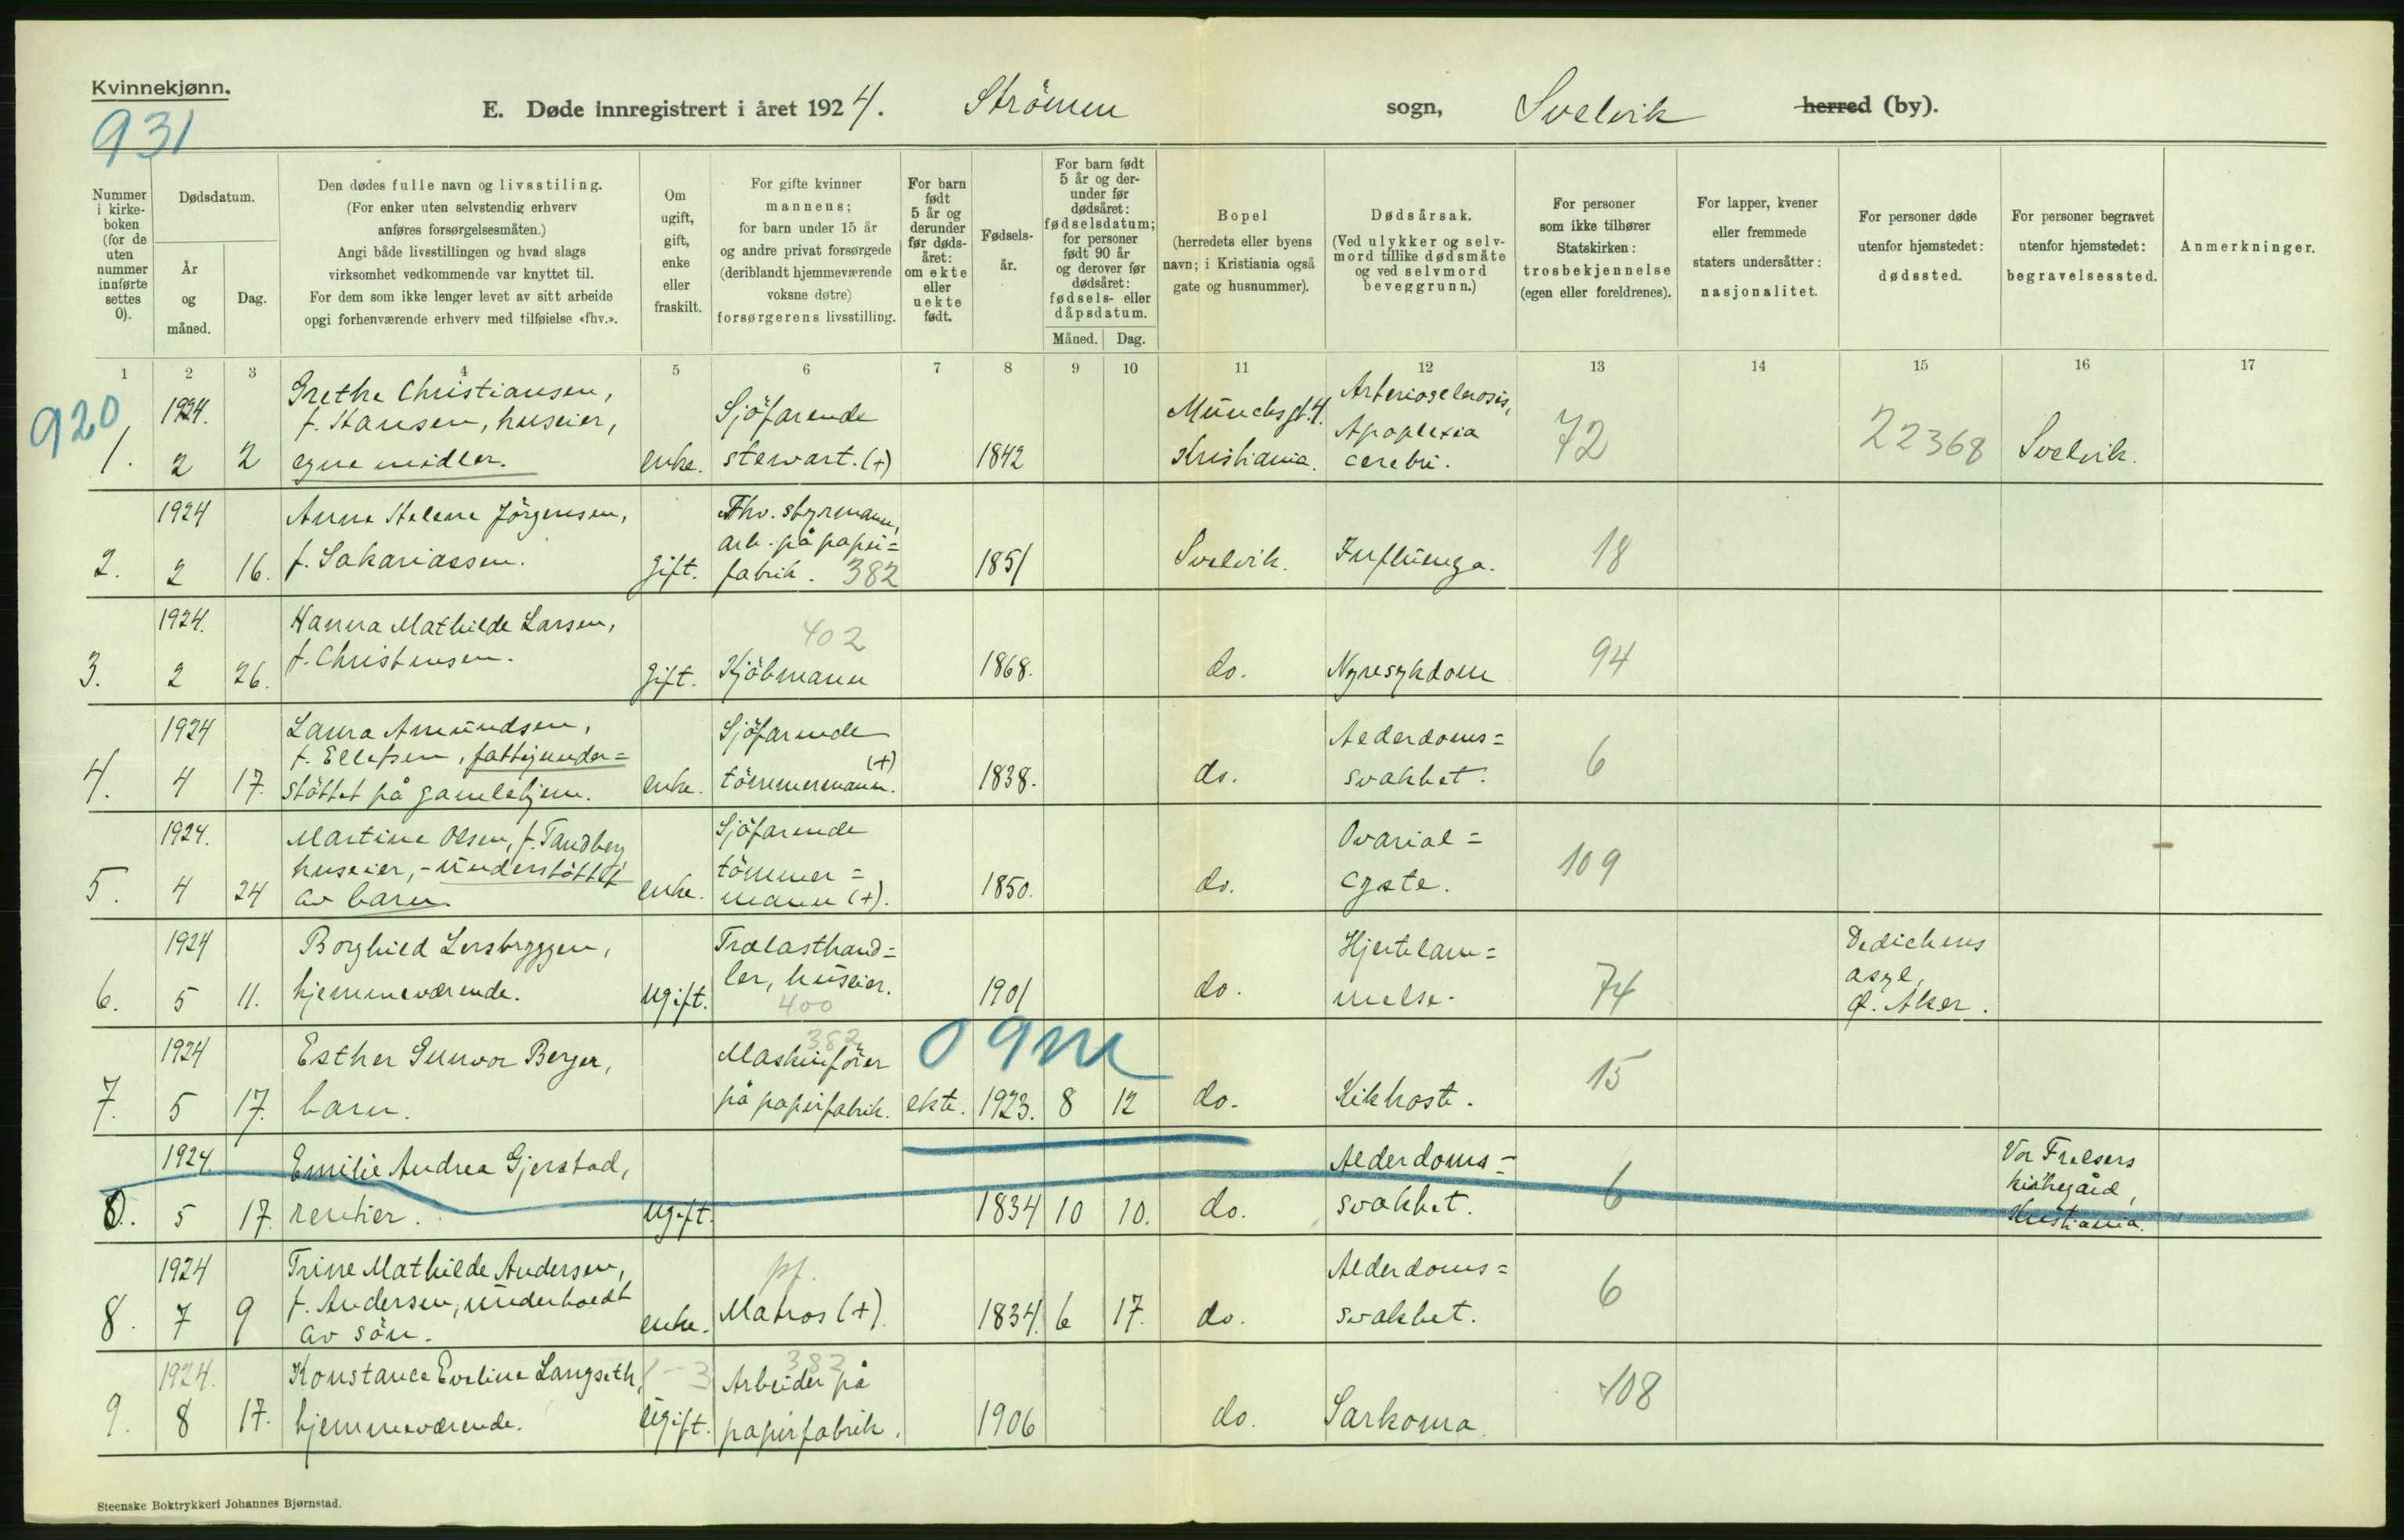 Kvinnekjønn.
931
E. Døde innregistrert i året 1924. Strömm sogn, Svelvik herred (by).
Nummer i kirke-boken (for de uten nummer innførte settes 0).
Dødsdatum.
År og måned.
Dag.
Den dødes fulle navn og livsstiling.
(For enker uten selvstendig erhverv
anføres forsørgelsesmåten.)
Angi både livsstillingen og hvad slags
virksomhet vedkommende var knyttet til.
For dem som ikke lenger levet av sitt arbeide
opgi forhenværende erhverv med tilføielse «fhv.».
Om
ugift,
gift,
enke
eller
fraskilt.
For gifte kvinner
mannens;
for barn under 15 år
og andre privat forsørgede
(deriblandt hjemmeværende
voksne døtre)
forsørgerens livsstilling.
For barn
født
5 år og
derunder
før døds-
året:
om ekte
eller
uekte
født.
Fødsels-
år.
For barn født
5 år og der-
under før
dødsåret:
fødselsdatum;
for personer
født 90 år
og derover før
dødsåret:
fødsels- eller
dåpsdatum.
Måned. Dag.
Bopel
(herredets eller byens
navn; i Kristiania også
gate og husnummer).
Dødsårsak.
(Ved ulykker og selv-
mord tillike dødsmåte
og ved selvmord
beveggrunn.)
For personer
som ikke tilhører
Statskirken:
trosbekjennelse
(egen eller foreldrenes).
For lapper, kvener
eller fremmede
staters undersåtter:
nasjonalitet.
For personer døde
utenfor hjemstedet:
dødssted.
For personer begravet
utenfor hjemstedet:
begravelsessted.
Anmerkninger.
1 2 3 4 5 6 7 8 9 10 11 12 13 14 15 16 17
920
1924. Grethe Christiansen, Sjöfarende Münchsgt. 4. Arteriosclerosis,
f. Hansen, huseier, Apoplexia
1. 2 2 egne midler. enke. stewart. (+) 1842 Kristiania. cerebri. 72 22368 Svelvik.
1924 Anna Helene Jörgensen, Fhv. styrmann,
arb. på papir=
2. 2 16. f. Sakariassen. Gift. fabrik. 382 1851 Svelvik. Influenza. 18
1924. Hanna Mathilde Larsen, 402
3. 2 26. f. Christensen. Gift. Kjöbmann 1868. do. Nyresykdom 94
1924 Laura Amundsen, Sjöfarende Alderdoms=
f. Ellefsen, fattigunder= (+)
4. 4 17. støttet på gamlehjem. enke. tömmermann. 1838. do. svakhet. 6
1924. Martine Olsen, f. Tandberg Sjöfarende Ovarial=
huseier, - understöttet tömmer=
5. 4 24 av barn. enke. mann (+). 1850. do. cyste. 109
1924 Borghild Lersbryggen, Trælasthand= Hjertelam= Dedichens
ler, huseier. asyl,
6. 5 11. hjemmeværende. Ugift. 400 1901 do. melse. 74 Ø. Aker.
1924 Esther Gunvor Berger, 382 Maskinförer 09m
7. 5 17. barn. på papirfabrik. ekte. 1923. 8 12 do. Kikhoste. 15
1924 Emilie Andrea Gjerstad, Alderdoms= Vor Frelsers
kirkegård,
0. 5 17. rentier. Ugift. 1834 10 10. do. svakhet. 6 Kristiania.
1924 Trine Mathilde Andersen, pf. Alderdoms=
f. Andersen, underholdt
8. 7 9 av sön. enke. Matros (+). 1834. 6 17. do. svakhet. 6
1924. Konstance Eveline Langseth, 1-3 382 Arbeider på
9. 8 17. hjemmeværende. Ugift. papirfabrik. 1906 do. Sarkoma. 108
Steenske Boktrykkeri Johannes Bjørnstad.